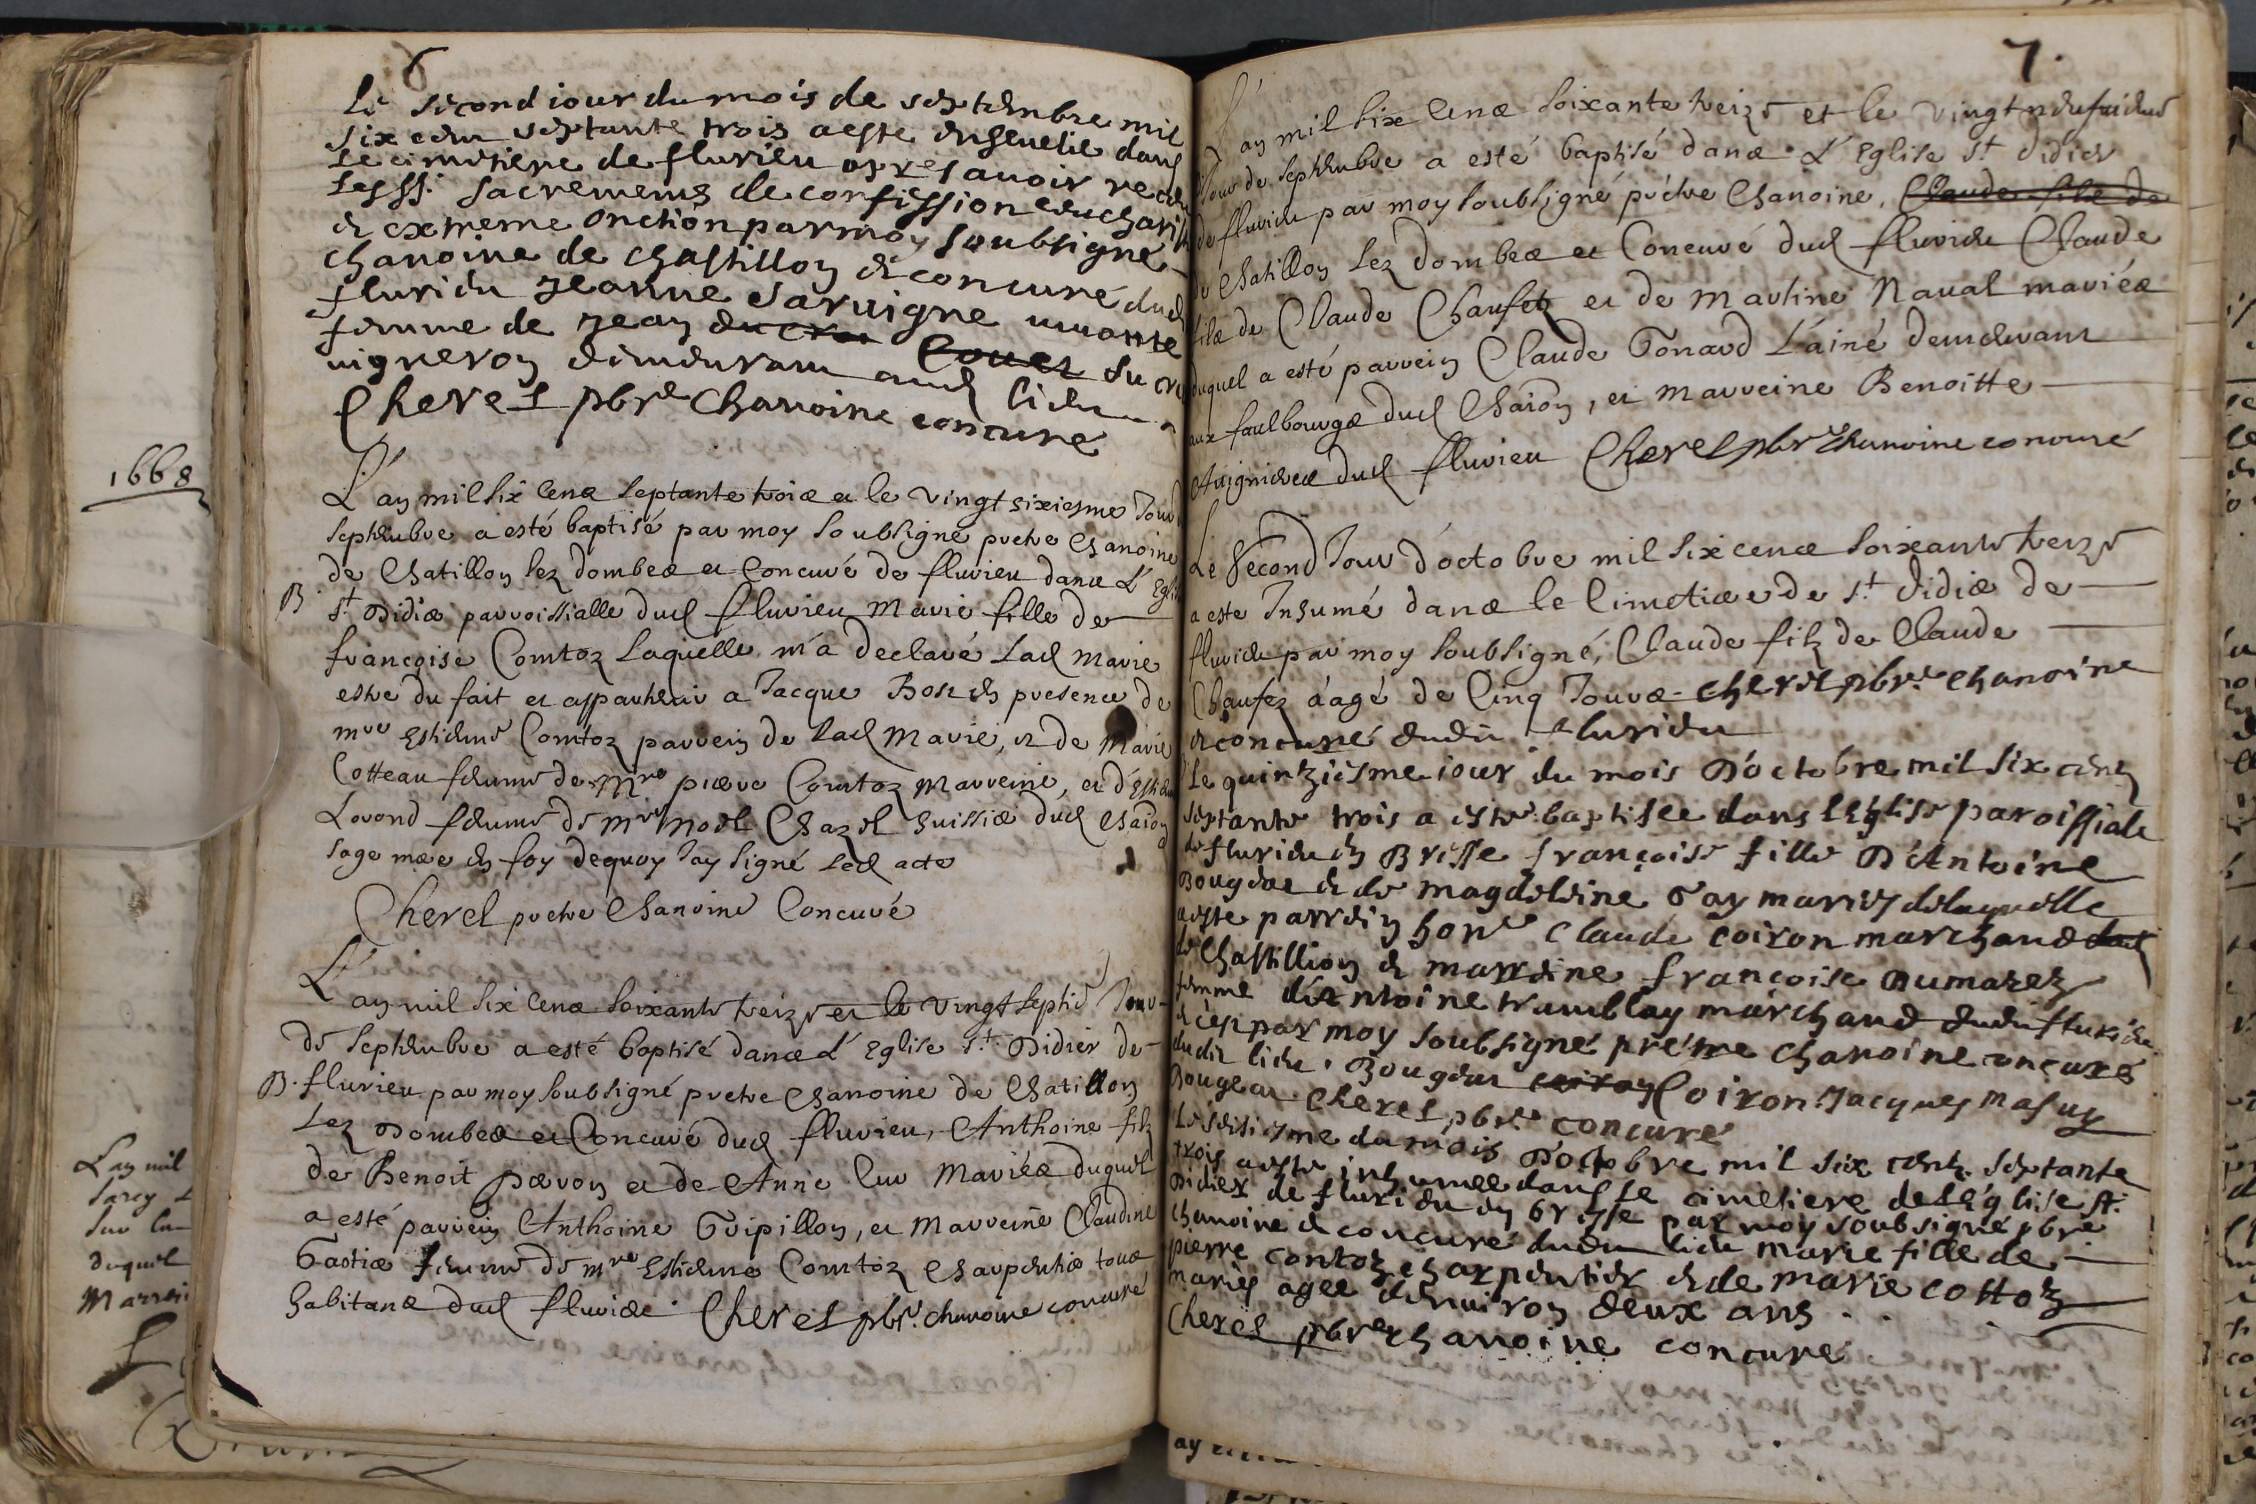 6
Le second iour du mois de septembre mil
six cens septante trois a esté ensevelie dans
le cimetiere de flurieu apres avoir receu
les sts. sacremens de confession eucharist
et extreme onction par moy soubsigné
chanoine de chastillon et concuré dud
flurieu Jeanne Sarvigne vivante
femme de Jean du cro Couet du cro
vigneron demeurant aud lieu
Cherel pbre chanoine concuré
1668
L'an mil six cens septante trois et le vingt sixiesme Jour
septembre a esté baptisé par moy soubsigné pretre chanoine
de Chatillon lez dombes et Concuré de flurieu dans L'Eglise
B. st Didier parroissialle dud flurieu Marie fille de
françoise Comtoz Laquelle m'a declaré Lad Marie
estre du fait et appartenir a Jacque Bost en presence de
mre Estienne Comtoz parrein de Lad Marie, et de Marie
Cotteau femme de Mre pierre Comtoz Marreine, et d'Estien
Lorond femme de mre Noël Chazel huissier dud Chaton
sage mere en foy dequoy Jay signé Led acte
Cherel pretre Chanoine Concuré
L'an mil six cens soixante treize et le vingt septie Jour
de septembre a esté baptisé dans L'Eglise st. Didier de
B. flurieu par moy soubsigné pretre chanoine de Chatillon
Lez Dombes et Concuré dud flurieu, Anthoine filz
de Benoit perron et de Anne luc Mariés duquel
a esté parrein Anthoine Gripillon, et Marreine Claudine
Gastier femme de mre Estienne Comtoz Charpentier tous
habitans dud flurieu. Cherel pbr. chanoine concuré
L'an mil
sarcy
sur la
duquel
Marrei
7.
L'an mil six cens soixante treize et le vingt neufvieme
Jour de septembre a esté baptisé dans L'Eglise st didier
de flurieu par moy soubsigné prêtre Chanoine, Claude filz de
de Chatillon lez dombes et Concuré dud flurieu Claude
filz de Claude Chaufez et de Martine Naval mariés
duquel a esté parrein Claude Gonard L'ainé demeurant
aux faulbourgs dud Chaton, et Marreine Benoitte
dud flurieu Cherel pbr chanoine concuré
Le Second Jour d'octobre mil six cens soixante treize
a esté Inhumé dans le Cimetiere de st. didier de
flurieu par moy soubsigné, Claude filz de Claude
Chaufez aagé de Cinq Jours. Cherel pbr. chanoine
et concuré dudit flurieu
Le quintziesme iour du mois D'octobre mil six cens
septante trois a esté baptisee dans l'eglise paroissiale
de flurieu en Bresse françoise fille D'Antoine
Bougeat et de magdeleine Gay mariés de laquelle
a esté parrein honre Claude coiron marchand dud
de Chastillion et marreine françoise Dumarez
femme d'Antoine tramblay marchand dudit flurieu
et ce par moy soubsigné prétre chanoine concuré
dudit lieu. Bougeat coiron Coiron. Jacques Masuy
Bougeat Cherel pbr. concuré
Le seisiesme du mois D'octobre mil six cens septante
trois a esté inhumee dans le cimetiere de l'eglise st.
Didier de flurieu en bresse par moy soubsigné pbre
chanoine et concuré dudit lieu marie fille de
pierre contoz charpentier et de marie cottotz
mariés agee denviron deux ans . .
Cherel pbre chanoine concuré